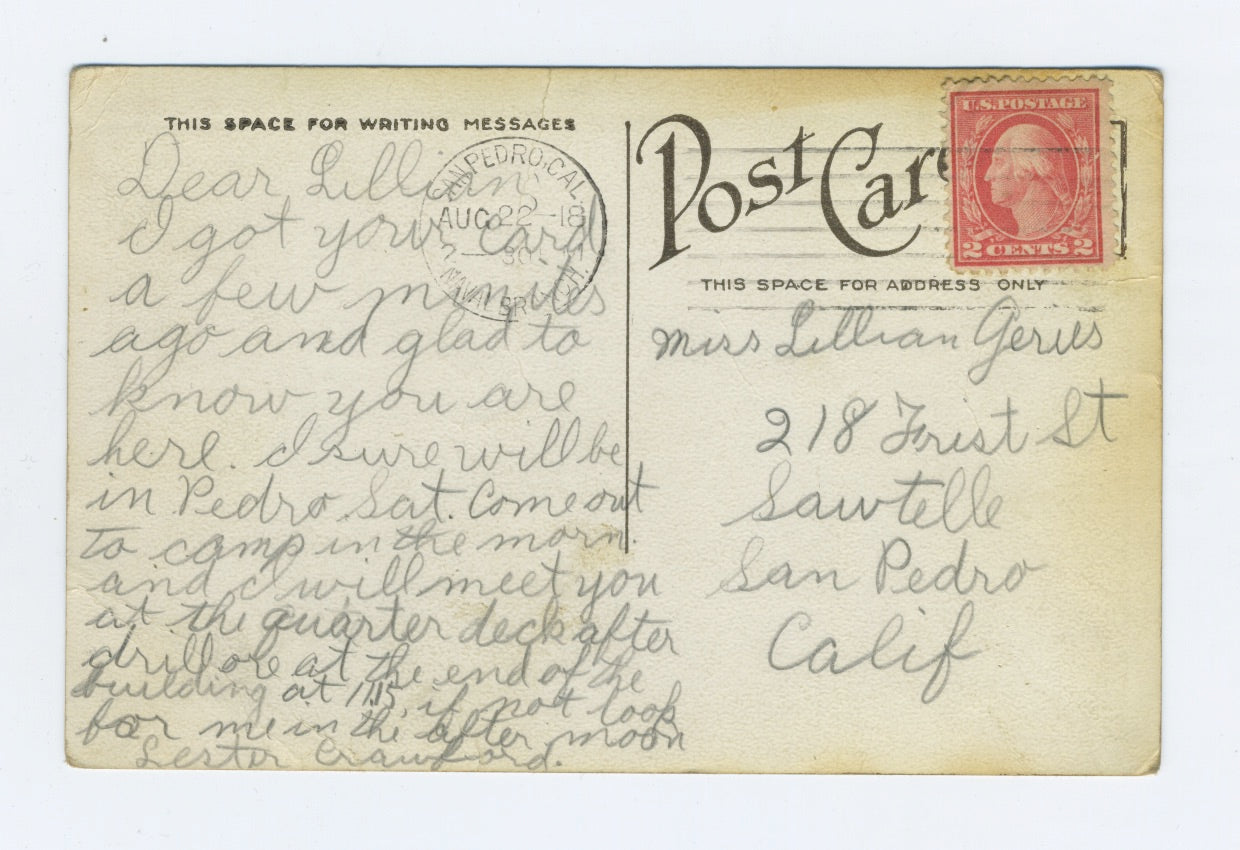 THIS SPACE FOR WRITING MESSAGES
Dear Lillian
I got your card
a few minutes
ago and glad to
know you are
here. I sure will be
in Pedro Sat. Come out
to camp in the morn.
and I will meet you
at the quarter deck after
drill ore at the end of the
building at 11:15, if not look
for me in the after moon
Lester Crawford.
SAN PEDRO, CAL.
AUG 22 -18
30
NAVAL BRANCH
Post Card
U.S. POSTAGE
2 CENTS 2
THIS SPACE FOR ADDRESS ONLY
Miss Lillian
218 First St
Sawtelle
San Pedro
Calif